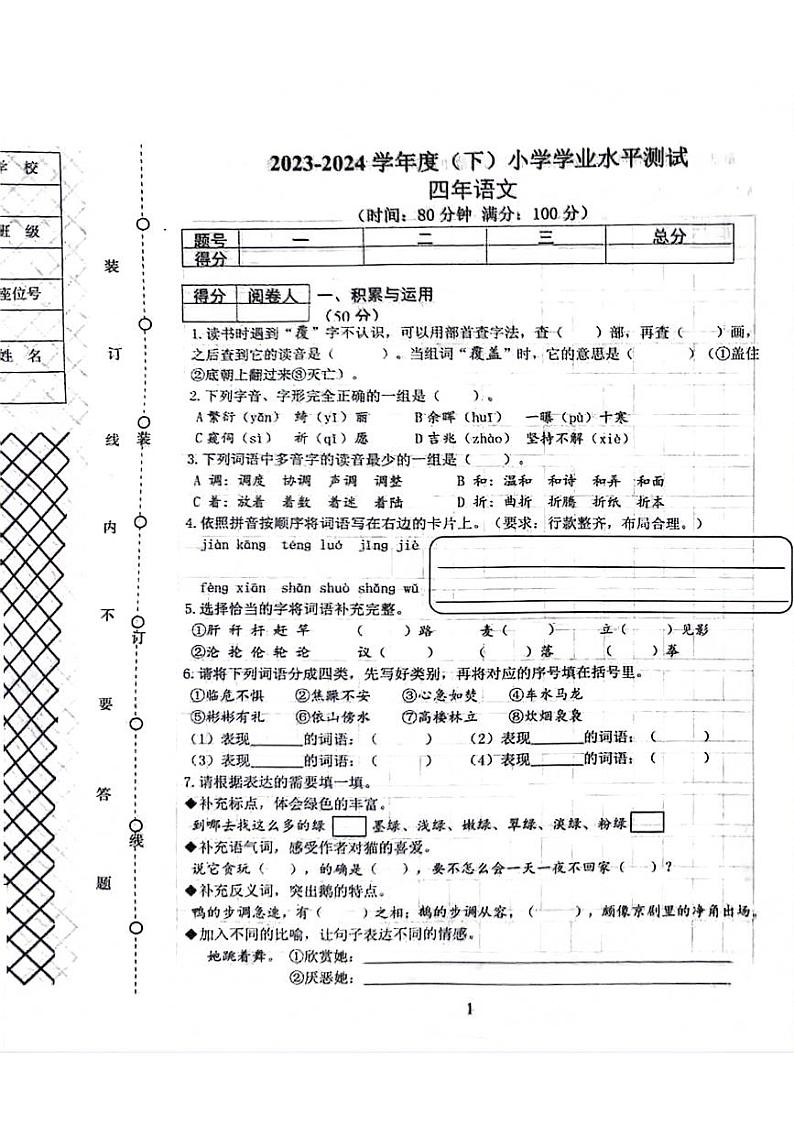 学 校
班 级
座位号
姓 名
装
订
线
内
不
要
答
题
装
订
线
2023-2024 学年度（下）小学学业水平测试
四年语文
（时间：80 分钟 满分：100 分）
题号 一 二 三 总分
得分
得分 阅卷人 一、积累与运用
（50 分）
1.读书时遇到“覆”字不认识，可以用部首查字法，查（ ）部，再查（ ）画，
之后查到它的读音是（ ）。当组词“覆盖”时，它的意思是（ ）（①盖住
②底朝上翻过来③灭亡）。
2.下列字音、字形完全正确的一组是（ ）。
A 繁衍（yǎn） 绮（yǐ）丽 B 余晖（huī） 一曝（pù）十寒
C 窥伺（sì） 祈（qǐ）愿 D 吉兆（zhào） 坚持不解（xiè）
3.下列词语中多音字的读音最少的一组是（ ）。
A 调：调度 协调 声调 调整 B 和：温和 和诗 和弄 和面
C 着：放着 着数 着迷 着陆 D 折：曲折 折腾 折纸 折本
4.依照拼音按顺序将词语写在右边的卡片上。（要求：行款整齐，布局合理。）
jiàn kāng téng luó jīng jiè
fèng xiān shǎn shuò shǎng wǔ
5.选择恰当的字将词语补充完整。
①肝 秆 杆 赶 竿 （ ）路 麦（ ） 立（ ）见影
②沦 抢 伦 轮 论 议（ ） （ ）落 （ ）拳
6.请将下列词语分成四类，先写好类别，再将对应的序号填在括号里。
①临危不惧 ②焦躁不安 ③心急如焚 ④车水马龙
⑤彬彬有礼 ⑥依山傍水 ⑦高楼林立 ⑧炊烟袅袅
（1）表现______的词语：（ ） （2）表现______的词语：（ ）
（3）表现______的词语：（ ） （4）表现______的词语：（ ）
7.请根据表达的需要填一填。
◆补充标点，体会绿色的丰富。
到哪去找这么多的绿 墨绿、浅绿、嫩绿、翠绿、淡绿、粉绿
◆补充语气词，感受作者对猫的喜爱。
说它贪玩（ ），的确是（ ），要不怎么会一天一夜不回家（ ）？
◆补充反义词，突出鹅的特点。
鸭的步调急速，有（ ）之相；鹅的步调从容，（ ），颇像京剧里的净角出场。
◆加入不同的比喻，让句子表达不同的情感。
她跳着舞。 ①欣赏她：
②厌恶她：
1